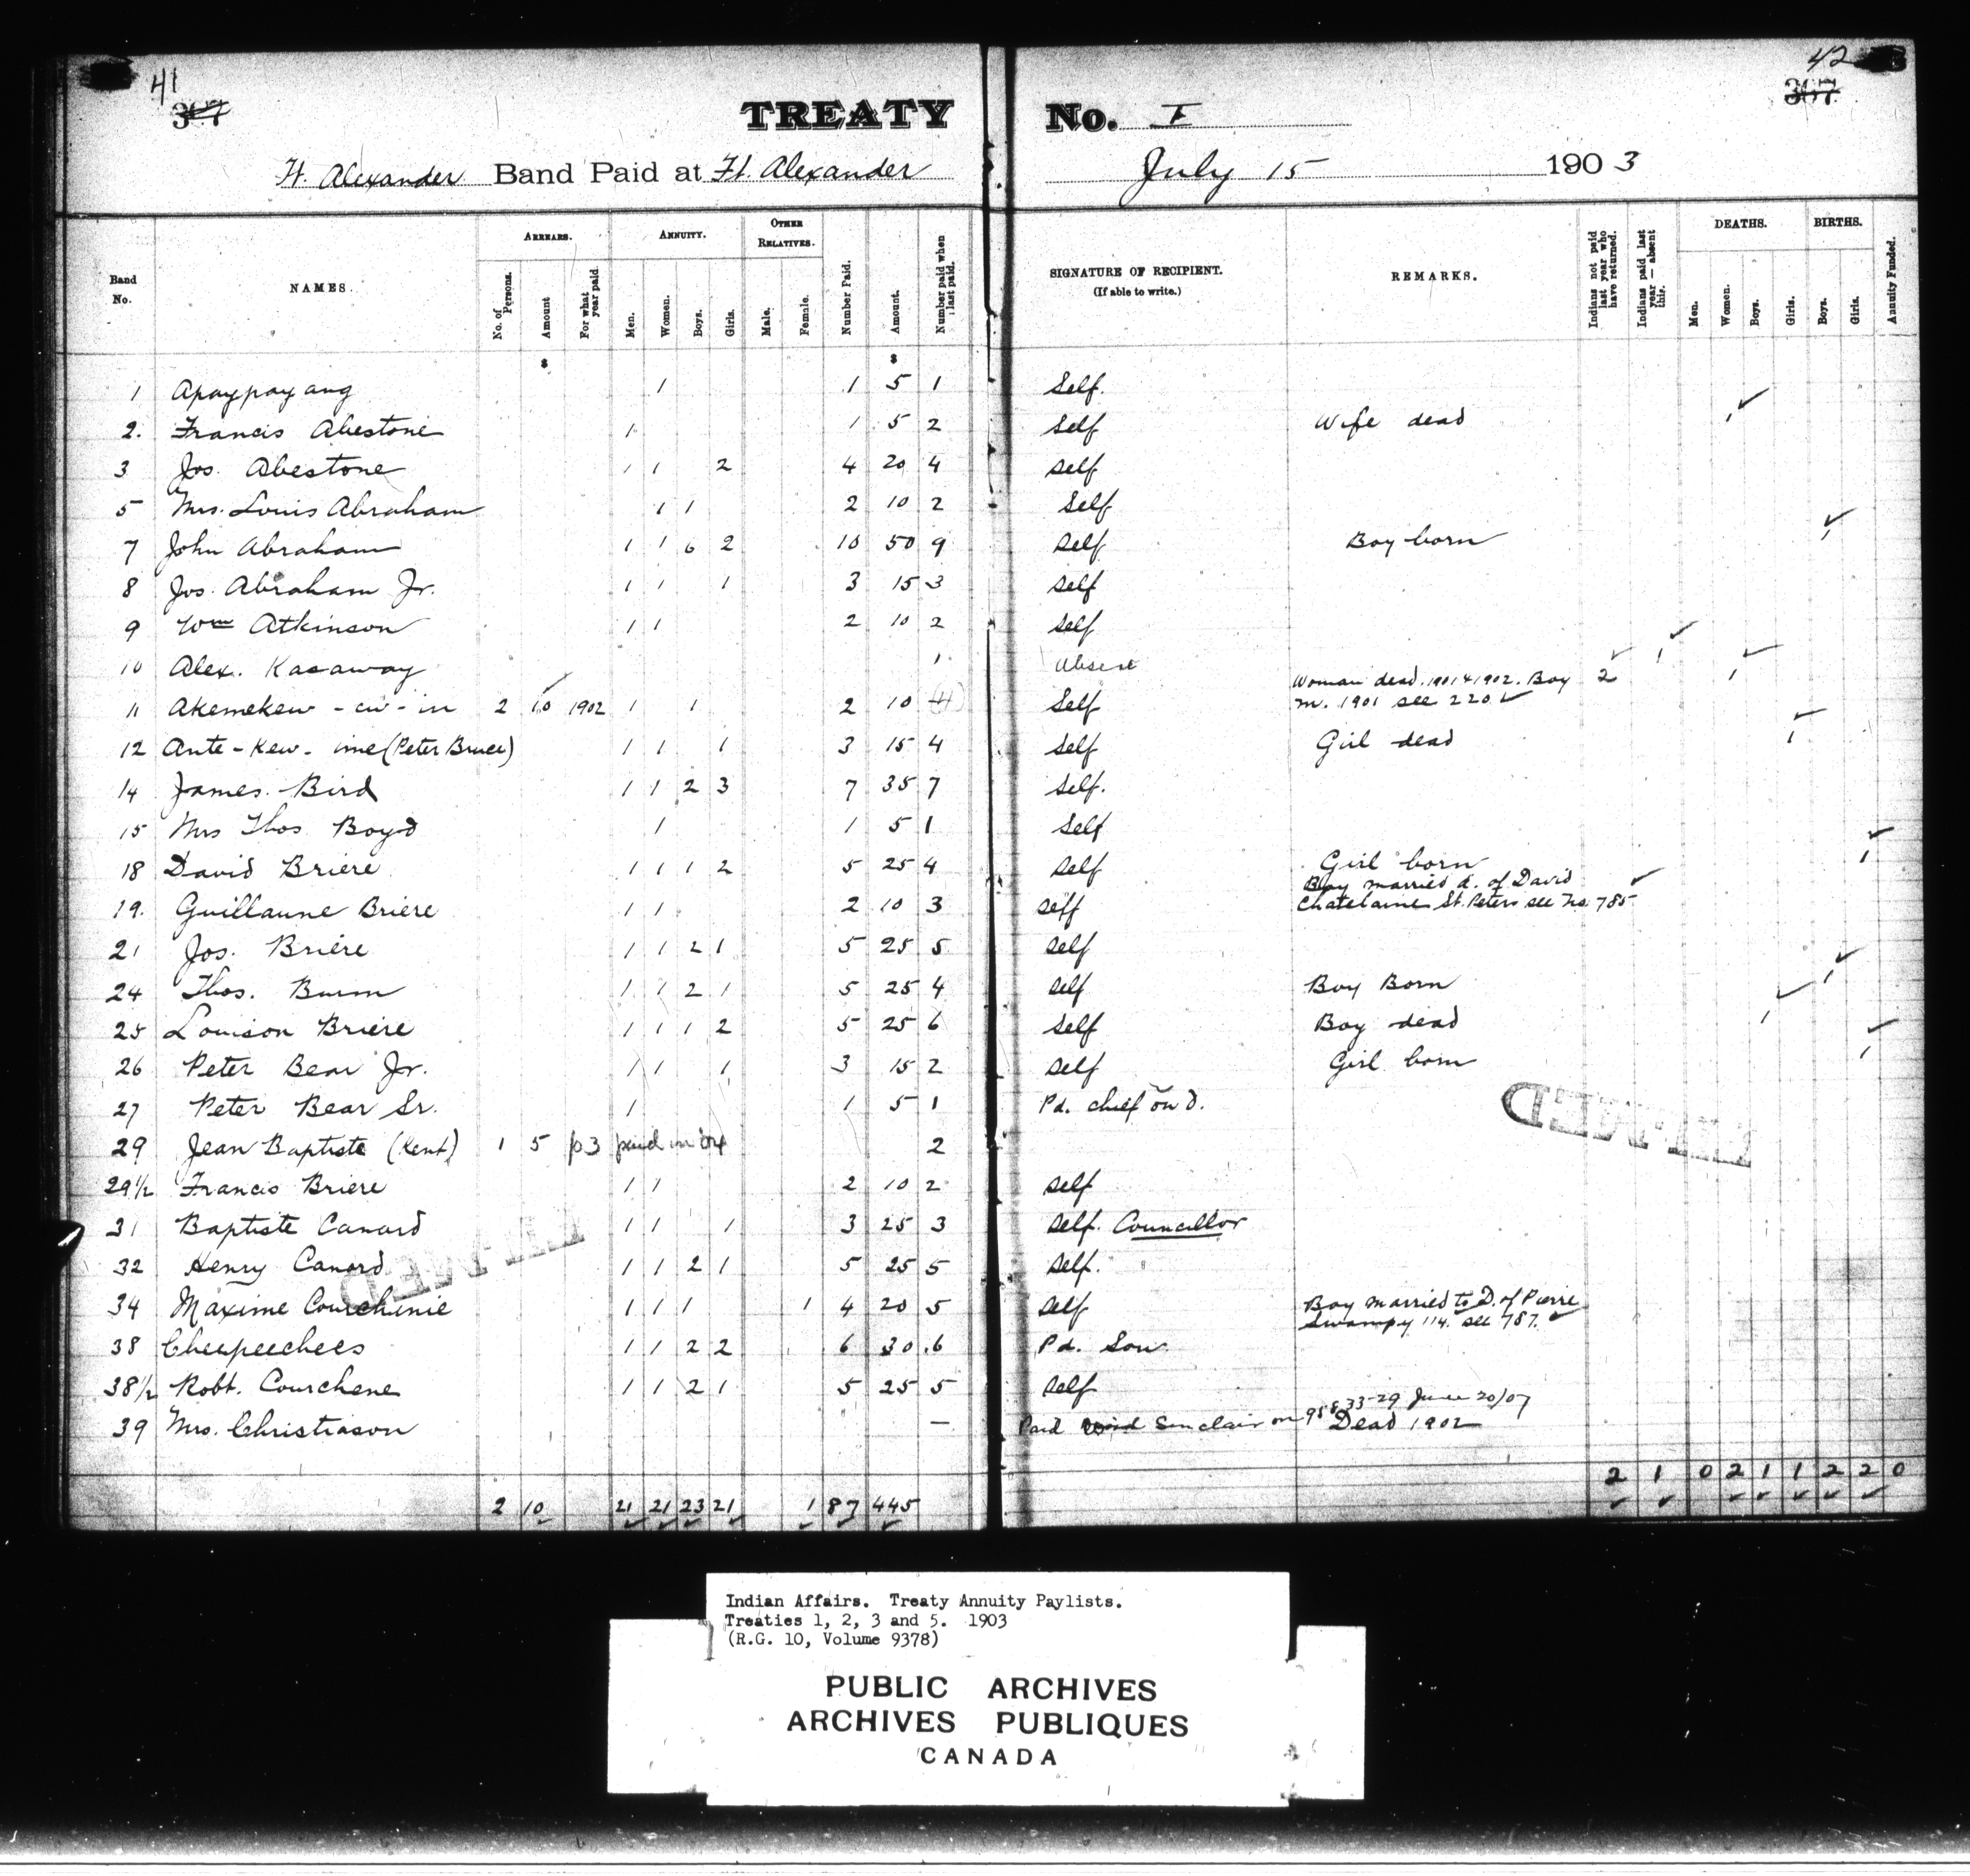 41
307
42
367
TREATY No. I
Ft. Alexander Band Paid at Ft. Alexander July 15 1903
Band No.
NAMES.
ARREARS.
No. of Persons.
Amount
For what year paid.
ANNUITY.
Men.
Women.
Boys.
Girls.
OTHER RELATIVES.
Male.
Female.
Number Paid.
Amount.
Number paid when last paid.
SIGNATURE OF RECIPIENT.
(If able to write.)
REMARKS.
Indians not paid last year who have returned.
Indians paid last year — absent this.
DEATHS.
Men.
Women.
Boys.
Girls.
BIRTHS.
Boys.
Girls.
Annuity Funded.
$ $
1 Apaypayang 1 1 5 1 Self.
2. Francis Abestone 1 1 5 2 Self Wife dead 1 ✓
3 Jos. Abestone 1 1 2 4 20 4 Self
5 Mrs. Louis Abraham 1 1 2 10 2 Self
7 John Abraham 1 1 6 2 10 50 9 Self Boy born 1 ✓
8 Jos. Abraham Jr. 1 1 1 3 15 3 Self
9 Wm Atkinson 1 1 2 10 2 Self
10 Alex. Kasaway 1 Absent 1 ✓
11 Akemekew-cw-in 2 10 ✓ 1902 1 1 2 10 (4) Self Woman dead. 1901 & 1902. Boy 2 ✓ 1 ✓
m. 1901 see 220 ✓
12 Ante-Kew-ime (Peter Bruce) 1 1 1 3 15 4 Self Girl dead 1 ✓
14 James. Bird 1 1 2 3 7 35 7 Self.
15 Mrs Thos Boyd 1 1 5 1 Self
18 David Briere 1 1 1 2 5 25 4 Self Girl born 1 ✓
19. Guillaume Briere 1 1 2 10 3 Self Boy married d. of David
Chatelaine St. Peters see No. 785 ✓
21 Jos. Briere 1 1 2 1 5 25 5 Self
24 Thos. Bunn 1 1 2 1 5 25 4 Self Boy Born 1 ✓
25 Louison Briere 1 1 1 2 5 25 6 Self Boy dead 1 ✓
26 Peter Bear Jr. 1 1 1 3 15 2 Self Girl born 1 ✓
27 Peter Bear Sr. 1 1 5 1 Pd. chief on d.
29 Jean Baptiste (Kent) 1 5 /03 paid in 04 2
29½ Francis Briere 1 1 2 10 2 Self
31 Baptiste Canard 1 1 1 3 25 3 Self. Councillor
32 Henry Canard 1 1 2 1 5 25 5 Self.
34 Maxime Courchinie 1 1 1 1 4 20 5 Self Boy married to D. of Pierre
Swampy 114. see 787. ✓
38 Cheepeechees 1 1 2 2 6 30 6 Pd. Son
38½ Robt. Courchene 1 1 2 1 5 25 5 Self
39 Mrs. Christiason — Paid Sinclair on 33-29 June 20/07
Dead 1902
2 10 21 21 23 21 1 87 445 2 1 0 2 1 1 2 2 0
Indian Affairs. Treaty Annuity Paylists.
Treaties 1, 2, 3 and 5. 1903
(R.G. 10, Volume 9378)
PUBLIC ARCHIVES
ARCHIVES PUBLIQUES
CANADA